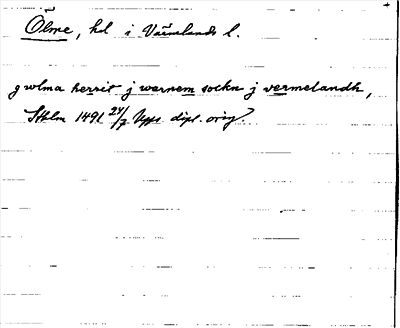 Ölme, hd i Värmlands l.
j wlma herrit j warnem sockn j vermelandh,
Sthlm 1491 24/7 Upps. dipl. orig.